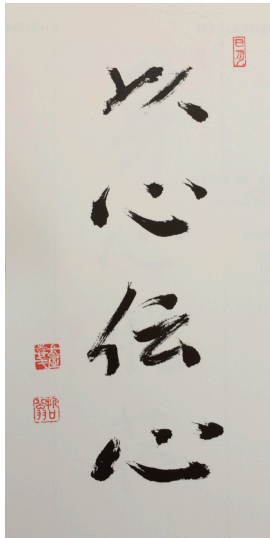 以心伝心